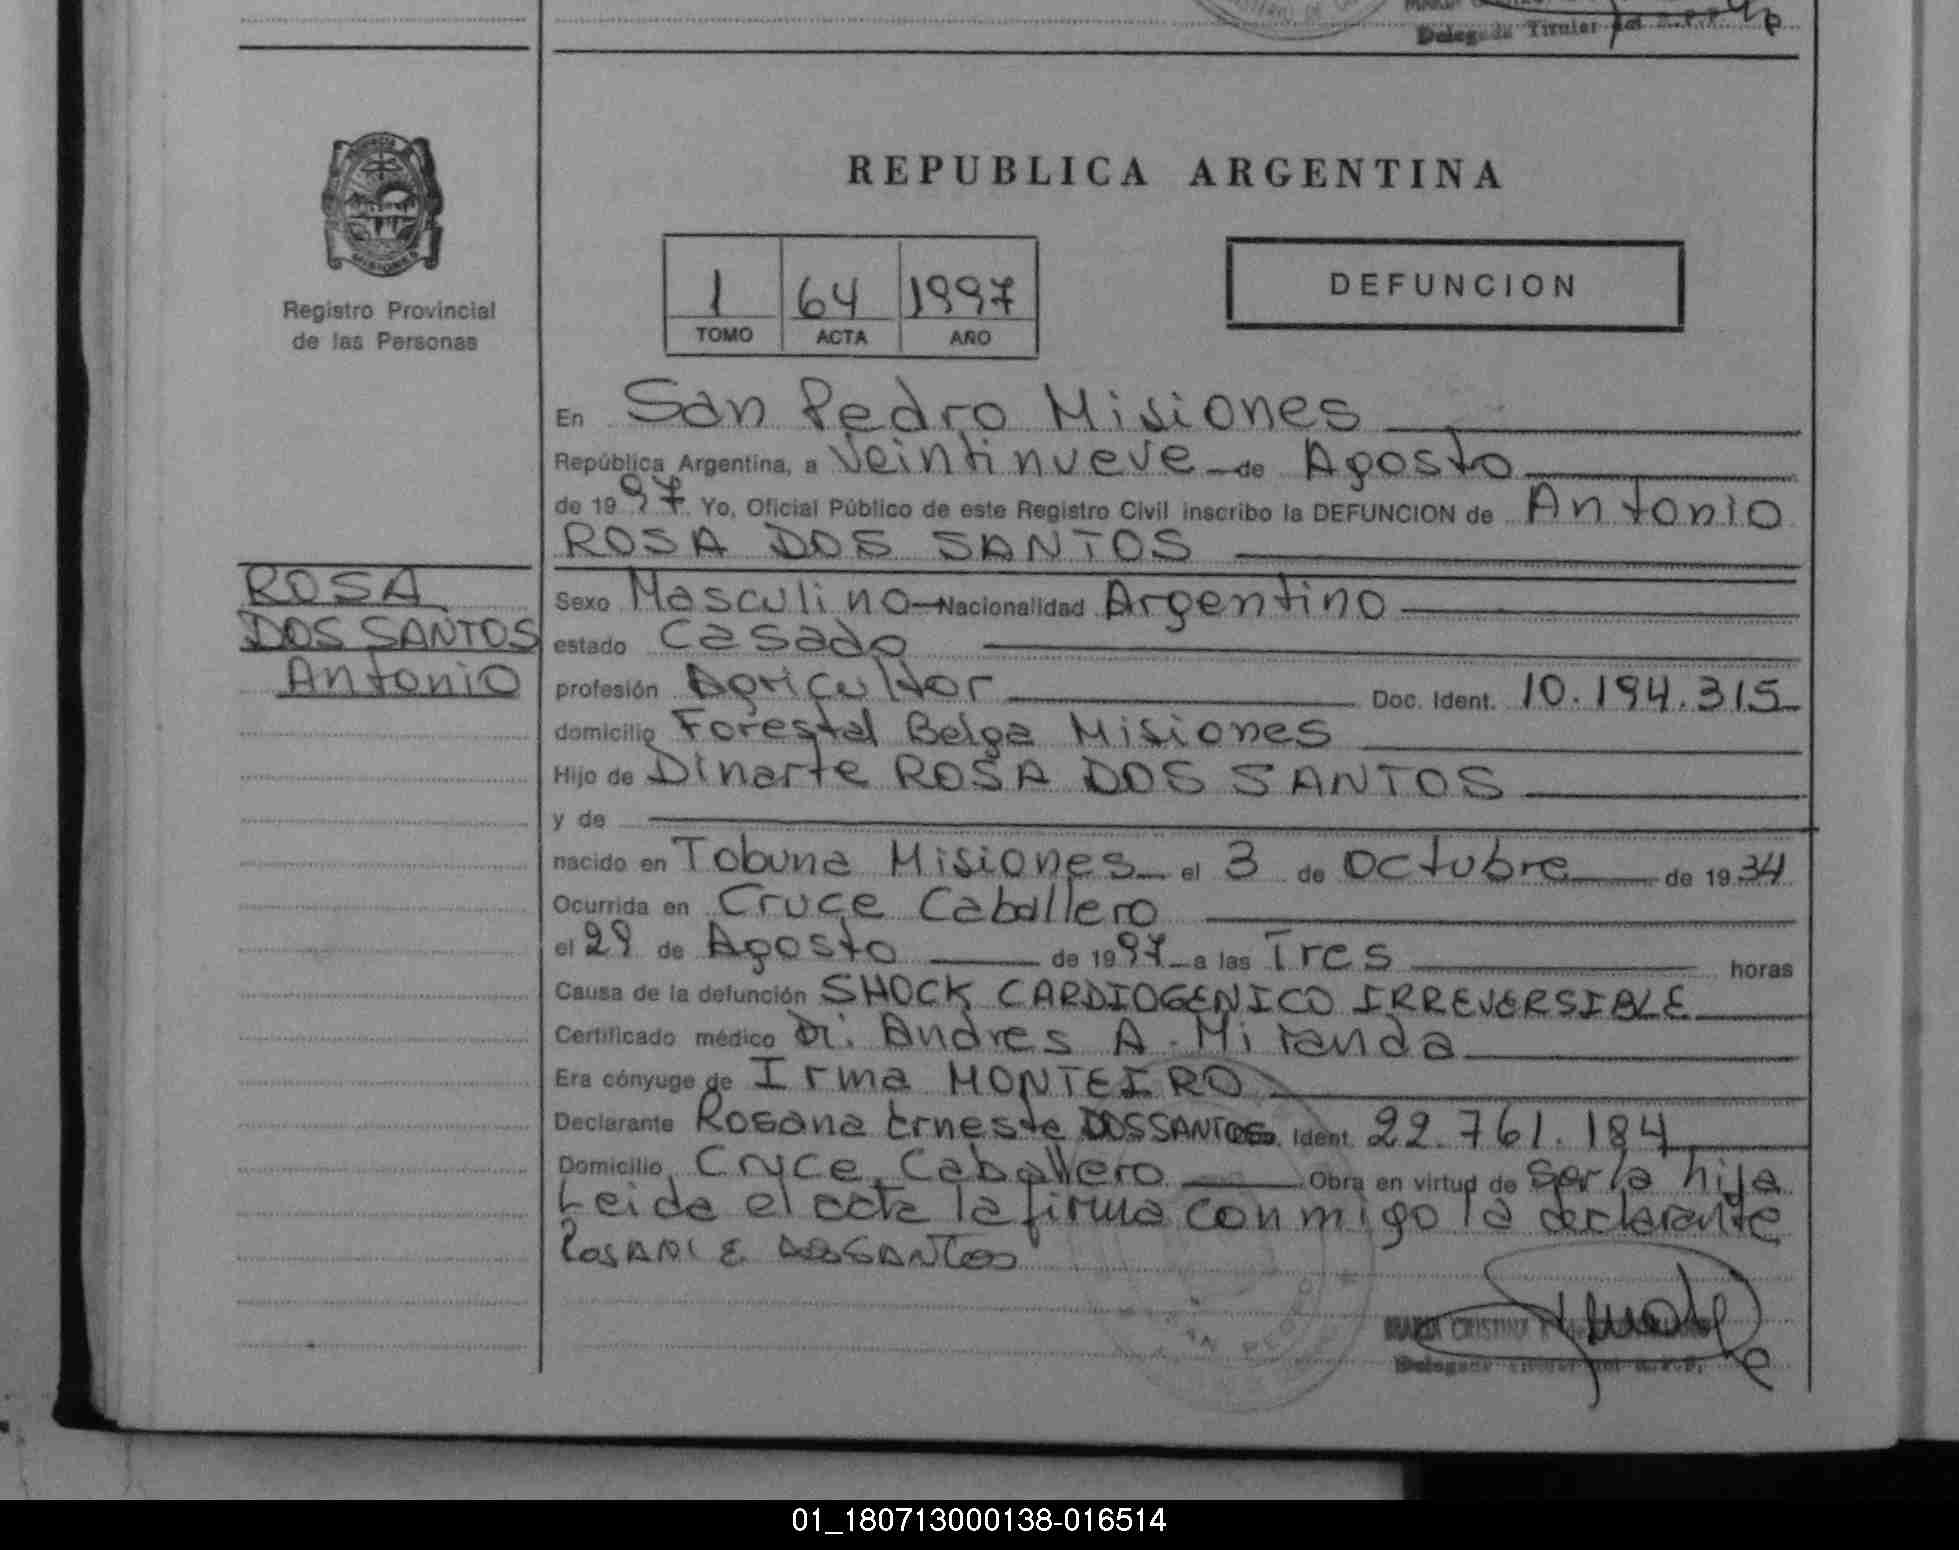 Delegada Titular del R.P.P.
REPUBLICA ARGENTINA
MISIONES
Registro Provincial
de las Personas
1 64 1997
TOMO ACTA AÑO
DEFUNCION
En San Pedro Misiones
República Argentina, a Veintinueve de Agosto
de 1997. Yo, Oficial Público de este Registro Civil inscribo la DEFUNCION de Antonio
ROSA DOS SANTOS
ROSA
DOS SANTOS
Antonio
Sexo Masculino Nacionalidad Argentino
estado Casado
profesión Agricultor Doc. Ident. 10.194.315
domicilio Forestal Belga Misiones
Hijo de Dinarte ROSA DOS SANTOS
y de
nacido en Tobuna Misiones el 3 de Octubre de 1934
Ocurrida en Cruce Caballero
el 29 de Agosto de 1997 a las Tres horas
Causa de la defunción SHOCK CARDIOGENICO IRREVERSIBLE
Certificado médico Dr. Andres A. Miranda
Era cónyuge de Irma MONTEIRO
Declarante Rosana Erneste DOS SANTOS Ident. 22.761.184
Domicilio Cruce Caballero Obra en virtud de ser la hija
Leida el acta la firma conmigo la declarante
ROSANI E DOSSANTOS
SAN PEDRO
MARIA CRISTINA
Delegada Titular del R.P.P.
01_180713000138-016514